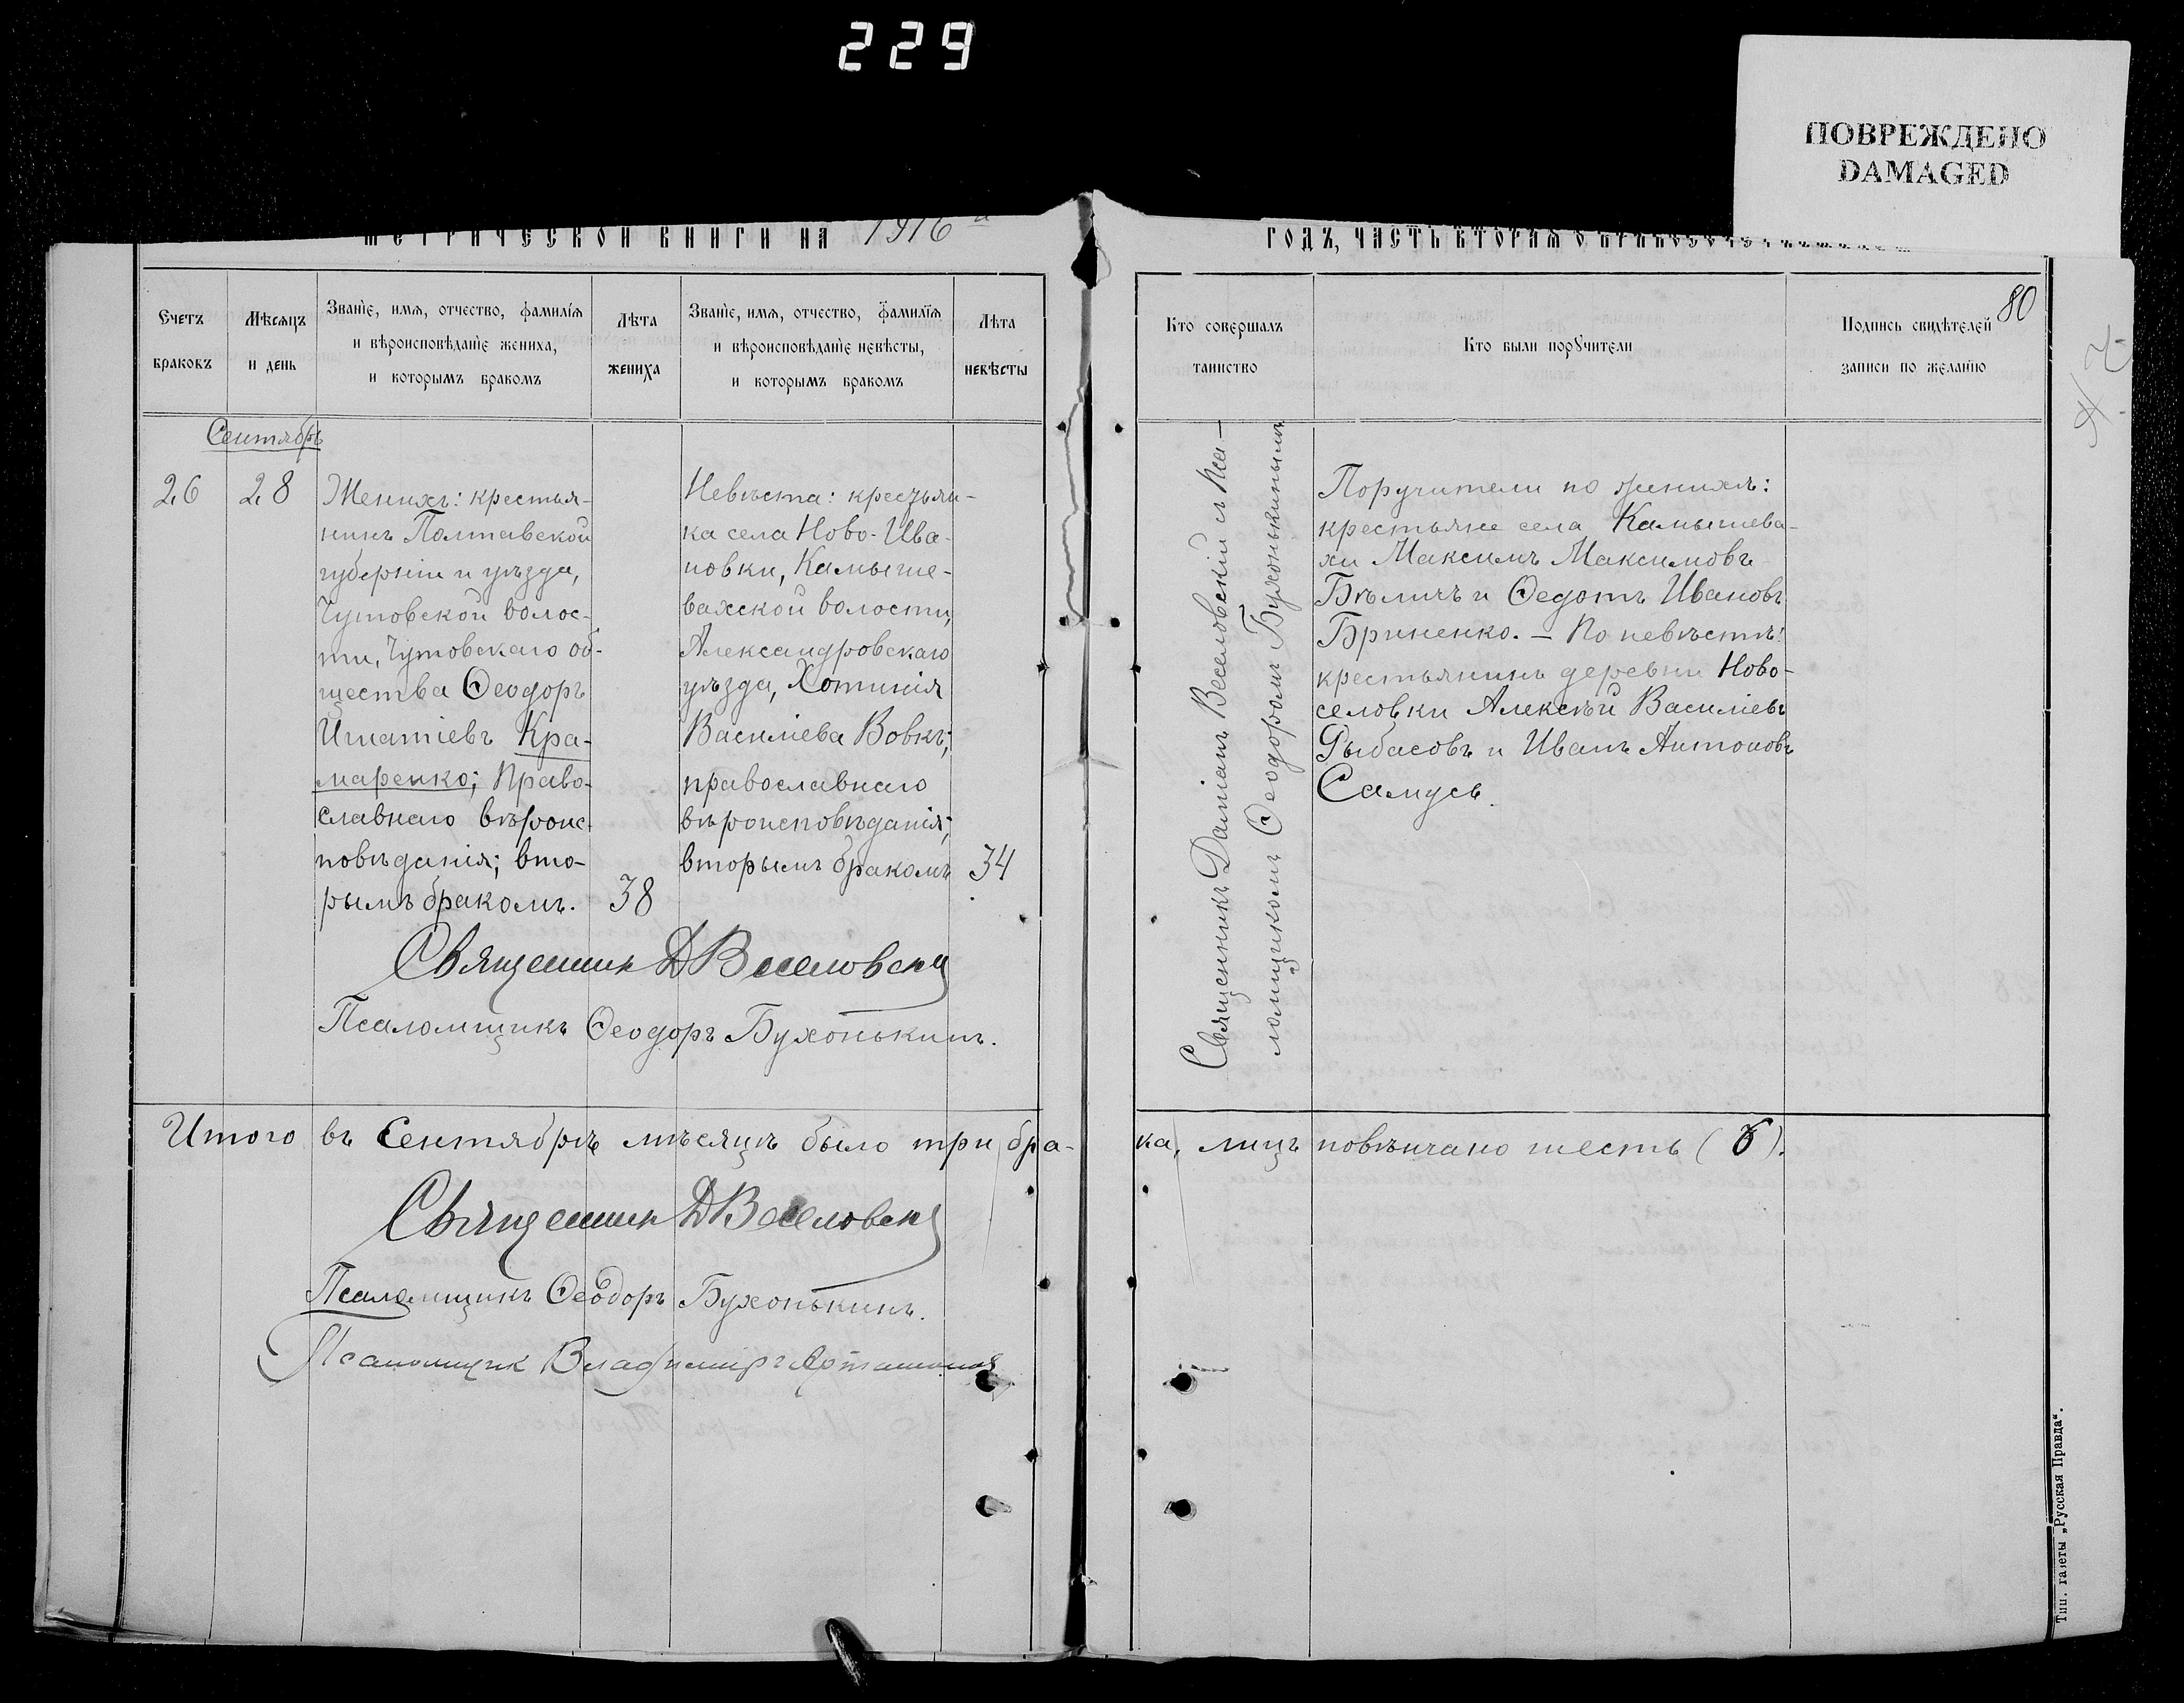 229
ПОВРЕЖДЕНО
DAMAGED
МЕТРИЧЕСКОЙ КНИГИ НА 1916
ГОДЪ, ЧАСТЬ ВТОРАЯ О
80
Счетъ
браковъ
Мѣсяцъ
и день
Званіе, имя, отчество, фамилія
и вѣроисповѣданіе жениха,
и которымъ бракомъ
Лѣта
жениха
Званіе, имя, отчество, фамилія
и вѣроисповѣданіе невѣсты,
и которымъ бракомъ
Лѣта
невѣсты
Кто совершалъ
таинство
Кто были поручители
Подпись свидѣтелей
записи по желанію
Сентябрь
26
28
Женихъ: крестья-
нинъ Полтавской
губерніи и уѣзда,
Чутовской волос-
ти, Чутовскаго об-
щества Ѳеодоръ
Игнатіевъ Кра-
маренко; Право-
славнаго вѣроис-
повѣданія; вто-
рымъ бракомъ.
38
Невѣста: крестьян-
ка села Ново-Ива-
новки, Камыше-
вахской волости,
Александровскаго
уѣзда, Хотинія
Василіева Вовкъ;
православнаго
вѣроисповѣданія;
вторымъ бракомъ
34
Священникъ Даміанъ Веселовскій съ Пса-
ломщикомъ Ѳеодоромъ Бухонькинымъ
Поручители по женихѣ:
крестьяне села Камышева-
хи Максимъ Максимовъ
Бѣличъ и Ѳедотъ Ивановъ
Бриненко. — По невѣстѣ:
крестьянинъ деревни Ново-
селовки Алексѣй Василіевъ
Рыбасовъ и Иванъ Антоновъ
Самусь.
Священник Д Веселовскі
Псаломщикъ Ѳеодоръ Бухонькинъ.
Итого въ Сентябрѣ мѣсяцѣ было три бра-
ка, лицъ повѣнчано шесть (6).
Священник Д Веселовск
Псаломщикъ Ѳеодоръ Бухонькинъ.
Псаломщик Владиміръ
Тип. газеты „Русская Правда“.